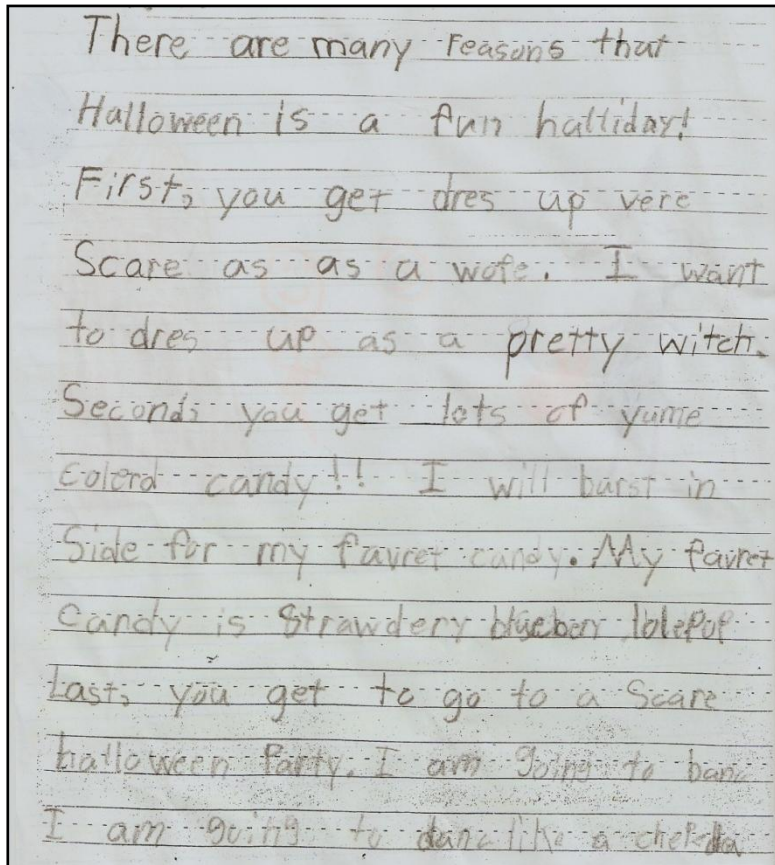 There are many reasons that
Halloween is a fun halliday!
First, you get dres up vere
Scare as as a wofe. I want
to dres up as a pretty witch.
Second, you get lots of yume
colerd candy!! I will barst in
Side for my favret candy. My favret
Candy is Strawdery blueberr lolePoP
Last, you get to go to a Scare
halloween Party. I am going to banc
I am going to danc like a